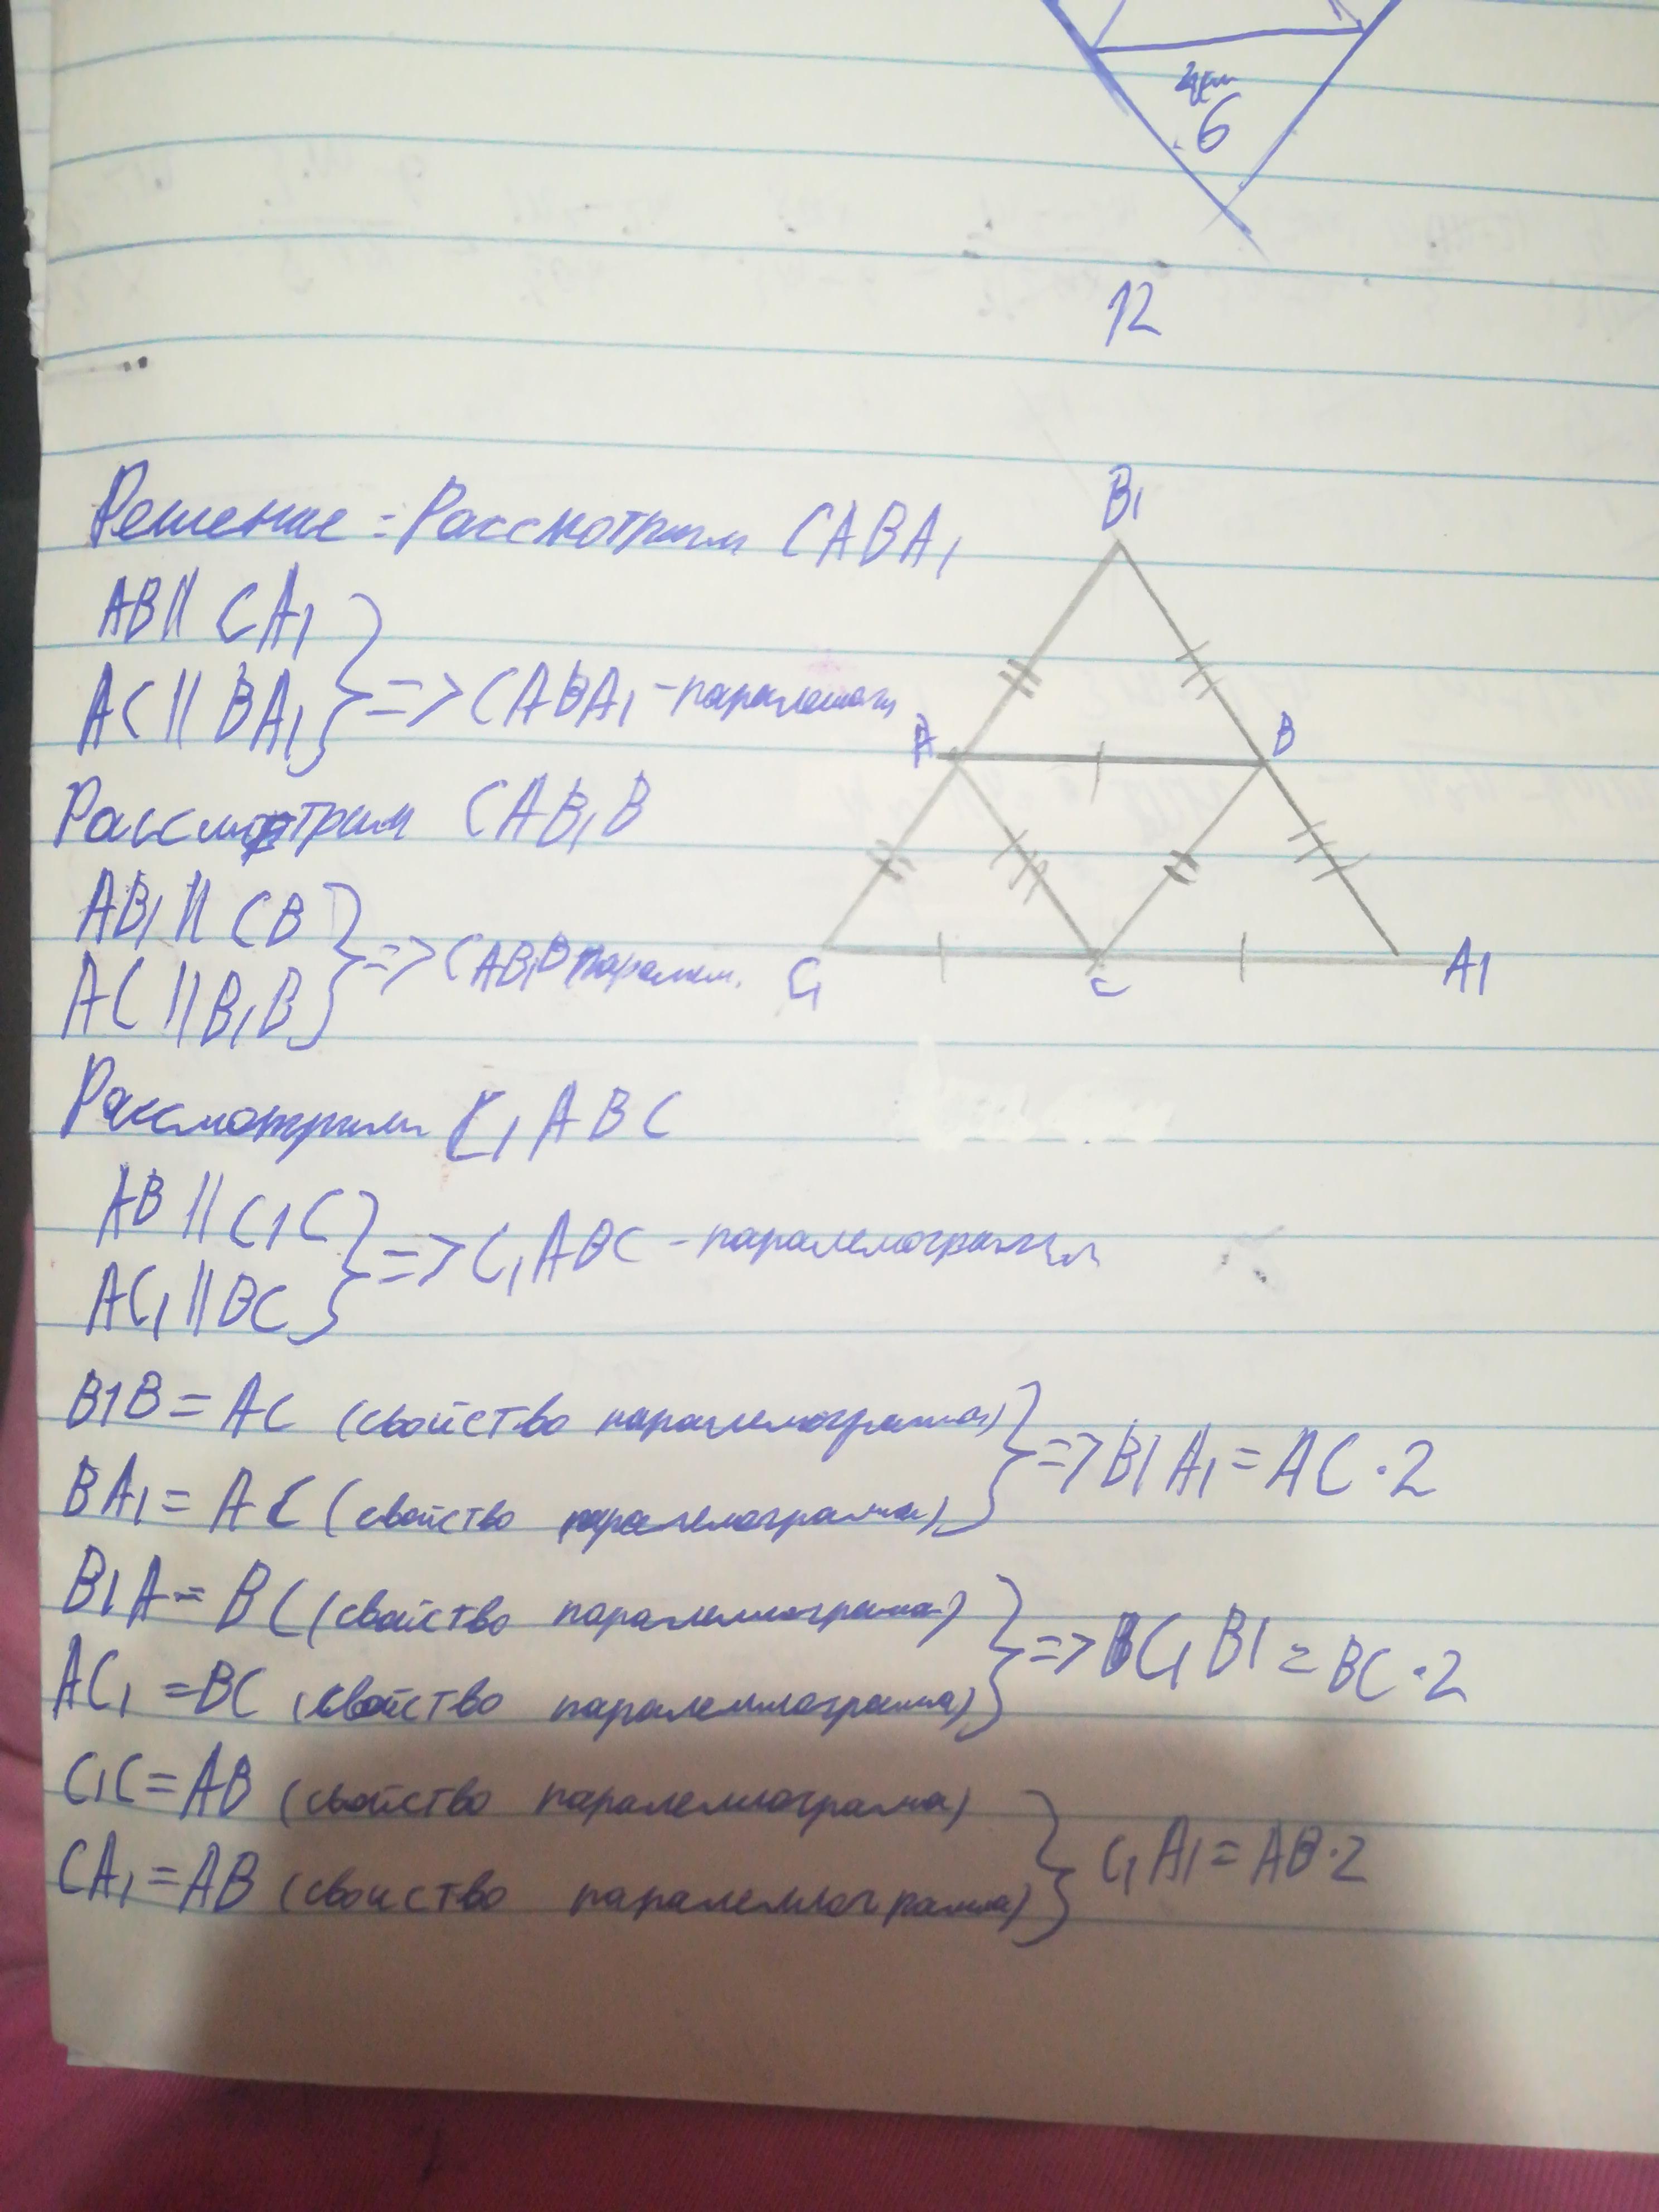 4см
6
12
Решение: Рассмотрим CABA₁
B₁
AB || CA₁
AC || BA₁ } => CABA₁ - паралелог
A
B
Рассмотрим CAB₁B
AB₁ || CB
AC || B₁B } => CAB₁B паралел.
C₁
C
A1
Рассмотрим C₁ABC
AB || C1C
AC₁ || BC } => C₁ABC - паралелограмм
B1B = AC (свойство паралелограма)
BA₁ = AC (свойство паралелограма) } => B1A₁ = AC · 2
B1A = BC (свойство паралелмограма)
AC₁ = BC (свойство паралелмограма) } => C₁B1 = BC · 2
C₁C = AB (свойство паралелмограма)
CA₁ = AB (свойство паралелмограма) } C₁A₁ = AB · 2